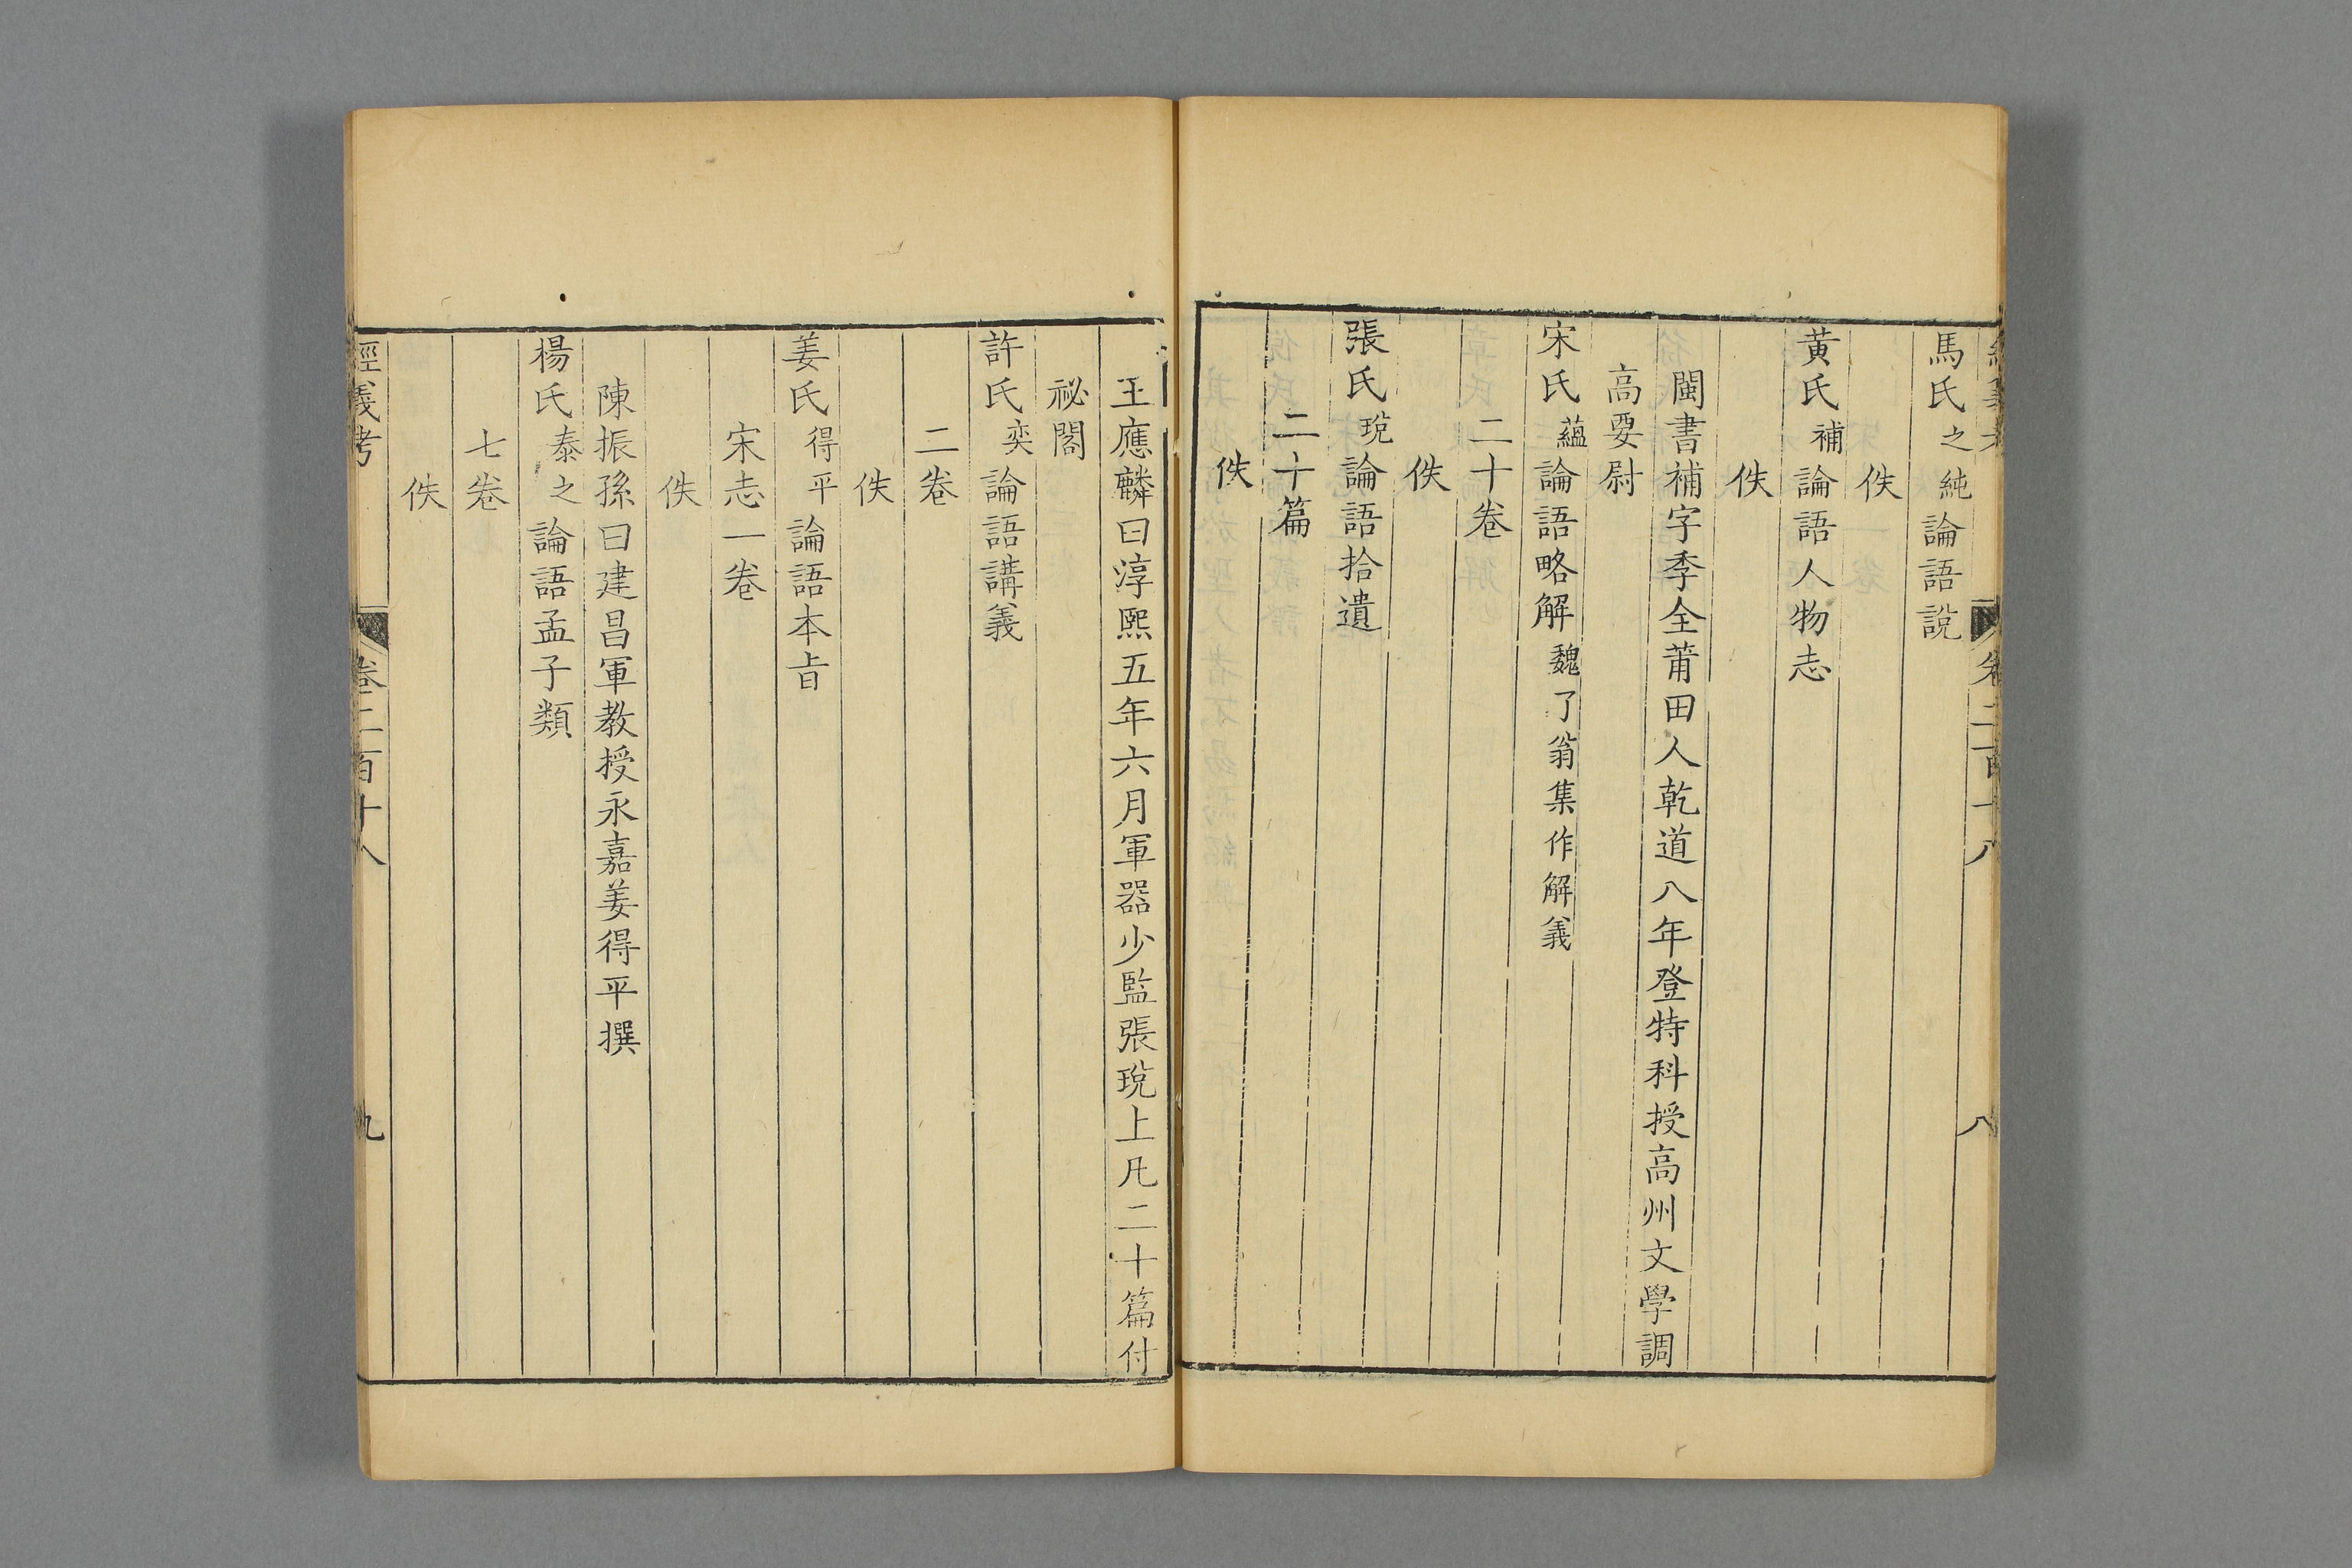 馬氏之純論語說
佚
黃氏補論語人物志
佚
閩書補字季全莆田人乾道八年登特科授高州文學調
高要尉
宋氏蘊論語略解魏了翁集作解義
二十卷
佚
張氏㙂論語拾遺
二十篇
佚
王應麟曰淳熙五年六月軍器少監張㙂上凡二十篇付
祕閣
許氏奕論語講義
二卷
佚
姜氏得平論語本旨
宋志一卷
佚
陳振孫曰建昌軍教授永嘉姜得平撰
楊氏泰之論語孟子類
七卷
佚
經義考 卷二百十八 九